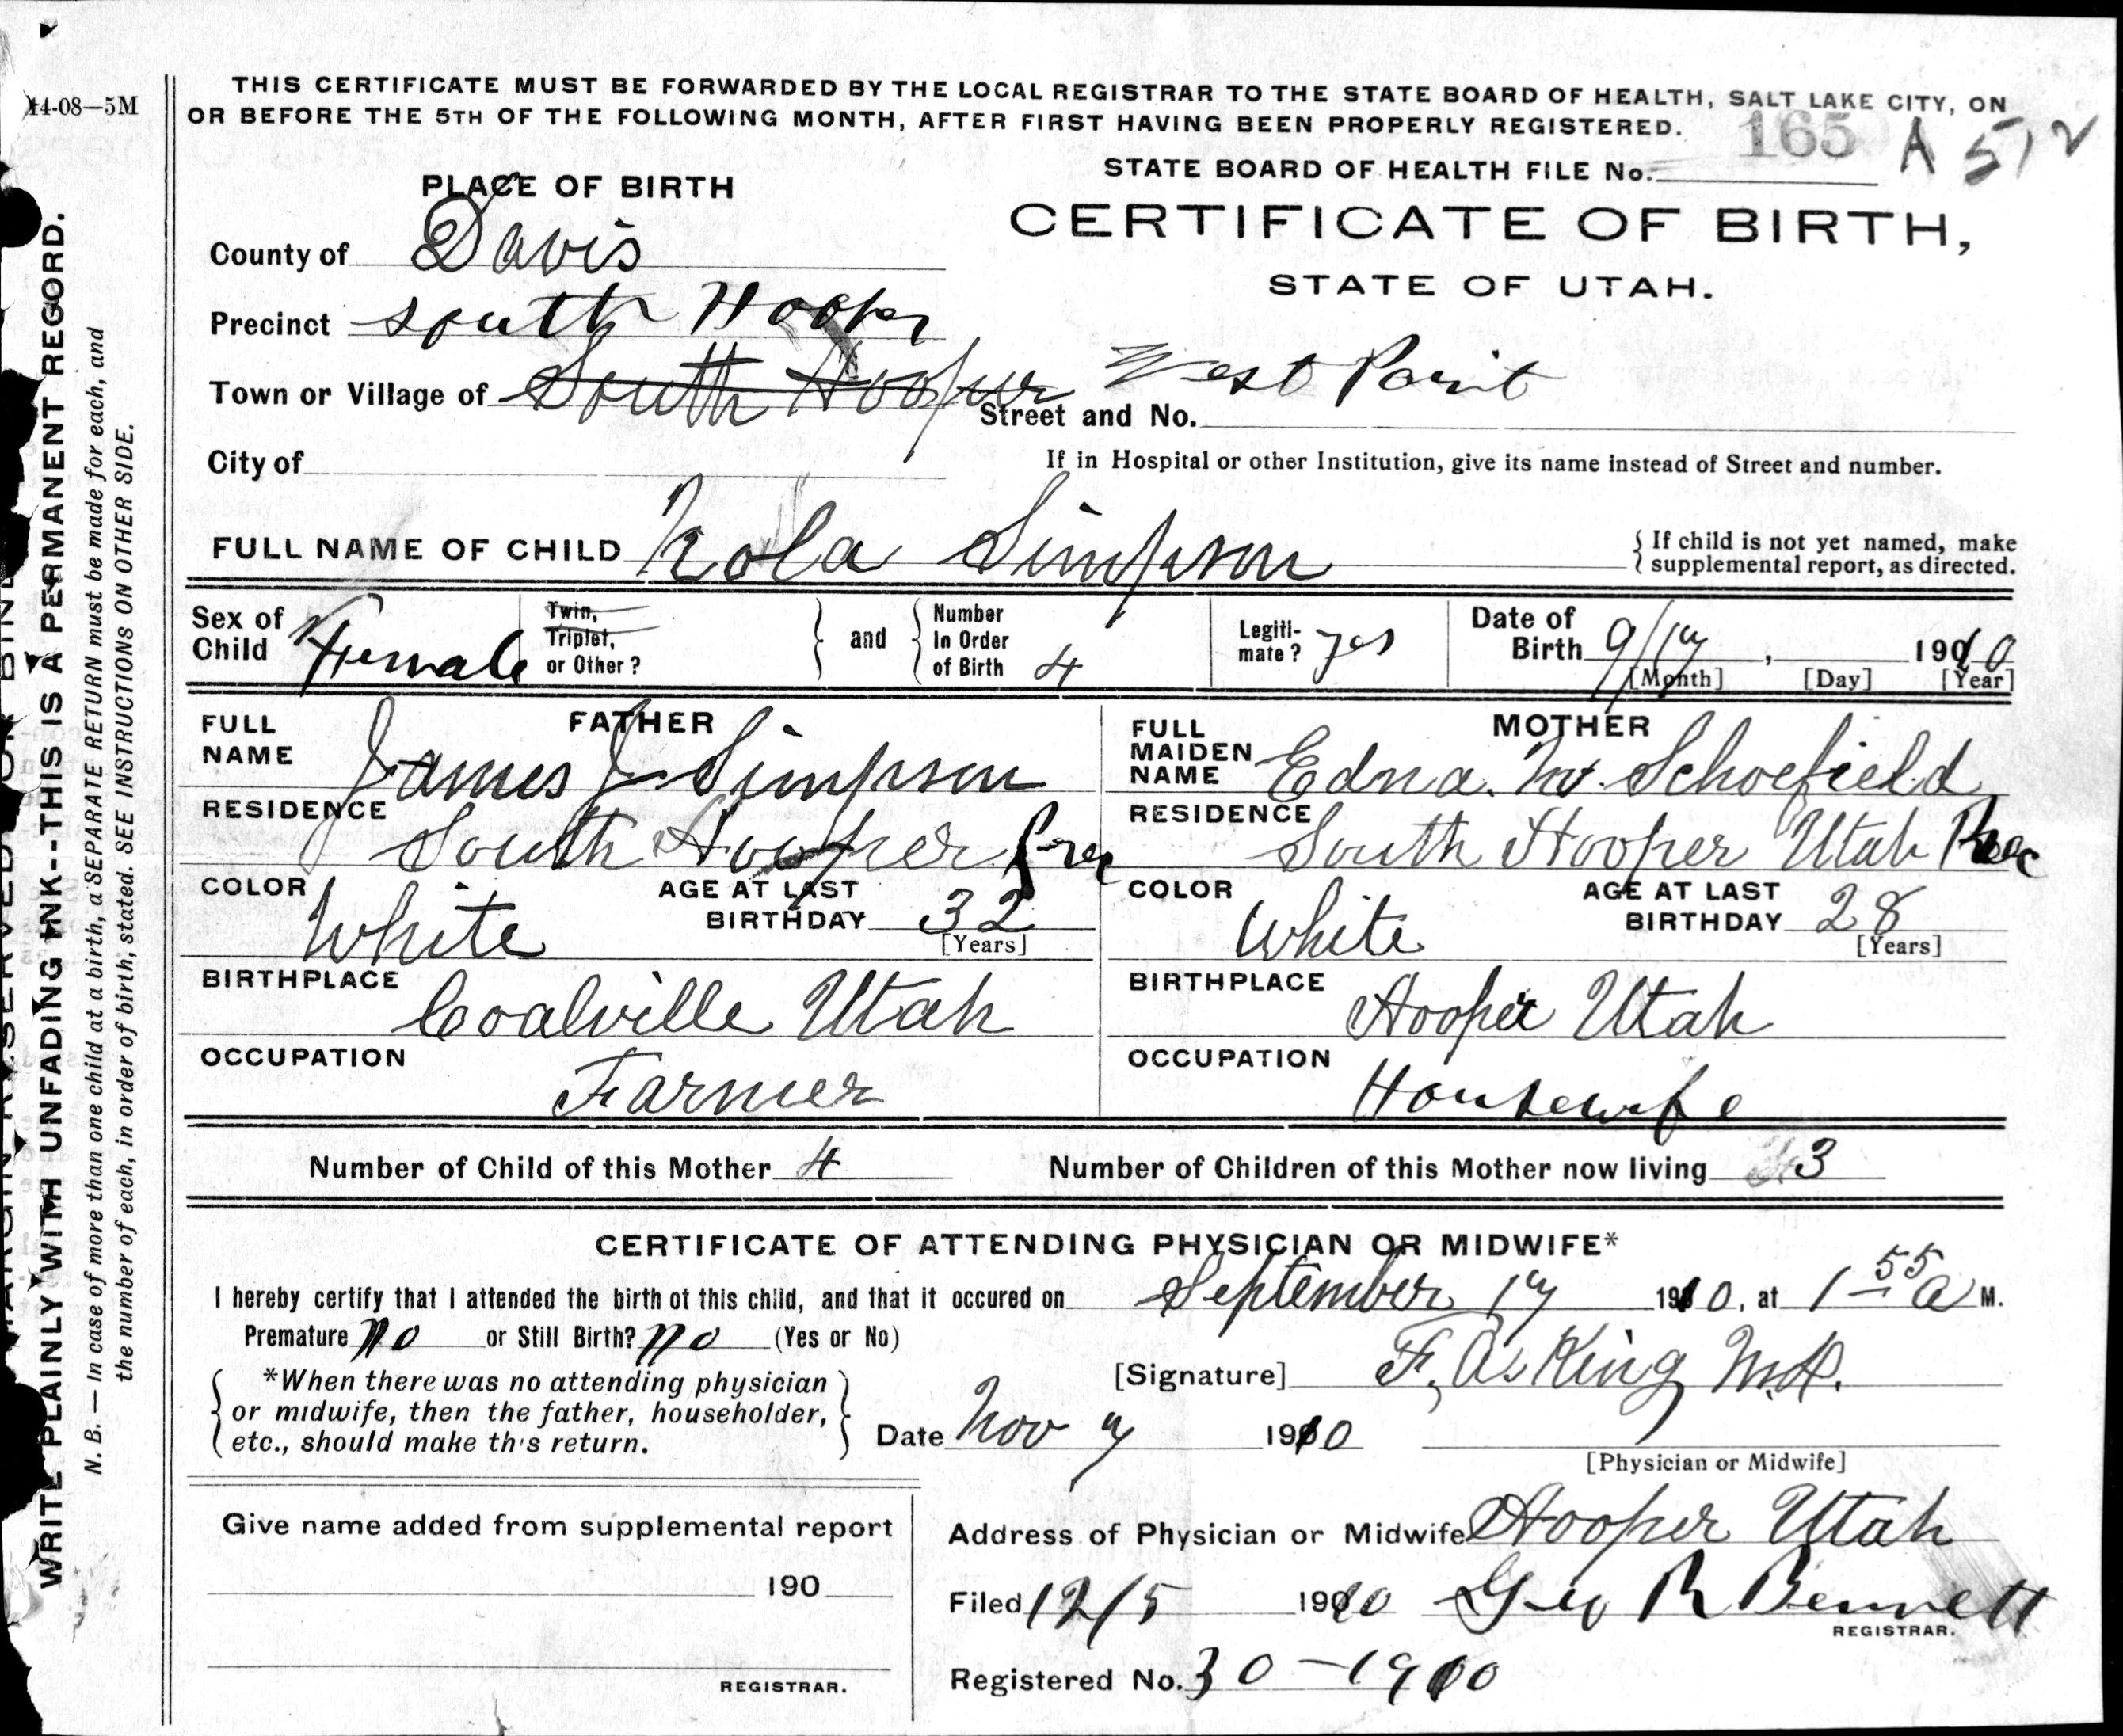 14-08—5M
THIS CERTIFICATE MUST BE FORWARDED BY THE LOCAL REGISTRAR TO THE STATE BOARD OF HEALTH, SALT LAKE CITY, ON
OR BEFORE THE 5TH OF THE FOLLOWING MONTH, AFTER FIRST HAVING BEEN PROPERLY REGISTERED.
165 A 512
STATE BOARD OF HEALTH FILE No.
PLACE OF BIRTH
CERTIFICATE OF BIRTH,
STATE OF UTAH.
County of Davis
Precinct South Hooper
Town or Village of South Hooper West Point
Street and No.
City of
If in Hospital or other Institution, give its name instead of Street and number.
FULL NAME OF CHILD Nola Simpson
{ If child is not yet named, make
supplemental report, as directed.
Sex of Child Female
Twin, Triplet, or Other? } and { Number In Order of Birth 4
Legiti-mate? yes
Date of Birth 9/17, 1910
[Month] [Day] [Year]
FATHER
FULL NAME James J Simpson
RESIDENCE South Hooper Prec
COLOR White
AGE AT LAST BIRTHDAY 32
[Years]
BIRTHPLACE Coalville Utah
OCCUPATION Farmer
MOTHER
FULL MAIDEN NAME Edna. M. Schofield
RESIDENCE South Hooper Utah Prec
COLOR White
AGE AT LAST BIRTHDAY 28
[Years]
BIRTHPLACE Hooper Utah
OCCUPATION Housewife
Number of Child of this Mother 4
Number of Children of this Mother now living 3
CERTIFICATE OF ATTENDING PHYSICIAN OR MIDWIFE*
I hereby certify that I attended the birth of this child, and that it occured on September 17 1910, at 1-55 A M.
Premature no or Still Birth? no (Yes or No)
{ *When there was no attending physician
or midwife, then the father, householder,
etc., should make this return. }
[Signature] F. A. King M.D.
Date Nov 7 1910
[Physician or Midwife]
Give name added from supplemental report
190
REGISTRAR.
Address of Physician or Midwife Hooper Utah
Filed 12/5 1910 Geo R Bennett
REGISTRAR.
Registered No. 30-1910
WRITE PLAINLY WITH UNFADING INK--THIS IS A PERMANENT RECORD.
N. B. — In case of more than one child at a birth, a SEPARATE RETURN must be made for each, and
the number of each, in order of birth, stated. SEE INSTRUCTIONS ON OTHER SIDE.